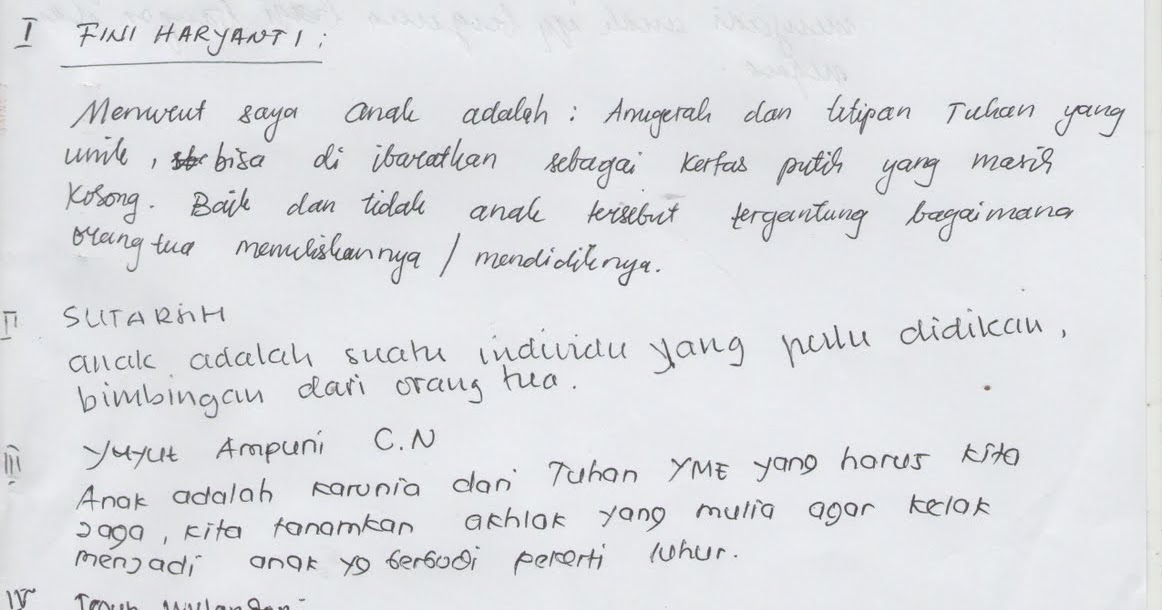 I FINI HARYANTI :
Menurut saya anak adalah : Anugerah dan titipan Tuhan yang
unik, bisa di ibaratkan sebagai kertas putih yang masih
kosong. Baik dan tidak anak tersebut tergantung bagaimana
orang tua menuliskannya / mendidiknya.
II SUTARSIH
anak adalah suatu individu yang perlu didikan,
bimbingan dari orang tua.
III Yuyut Ampuni C.N
Anak adalah karunia dari Tuhan YME yang harus kita
jaga, kita tanamkan akhlak yang mulia agar kelak
menjadi anak yg berbudi pekerti luhur.
IV